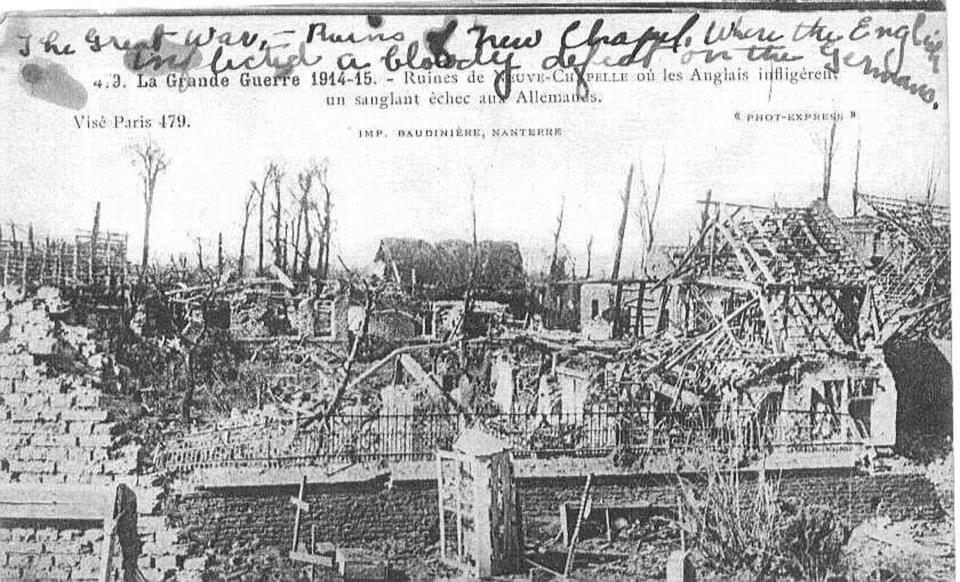 The Great War, – Ruins of New Chapel. Where the English
inflicted a bloody defeat on the Germans.
4.3. La Grande Guerre 1914-15. - Ruines de NEUVE-CHAPELLE où les Anglais infligèrent
un sanglant échec aux Allemands.
Visé Paris 479.
« PHOT-EXPRESS »
IMP. BAUDINIÈRE, NANTERRE